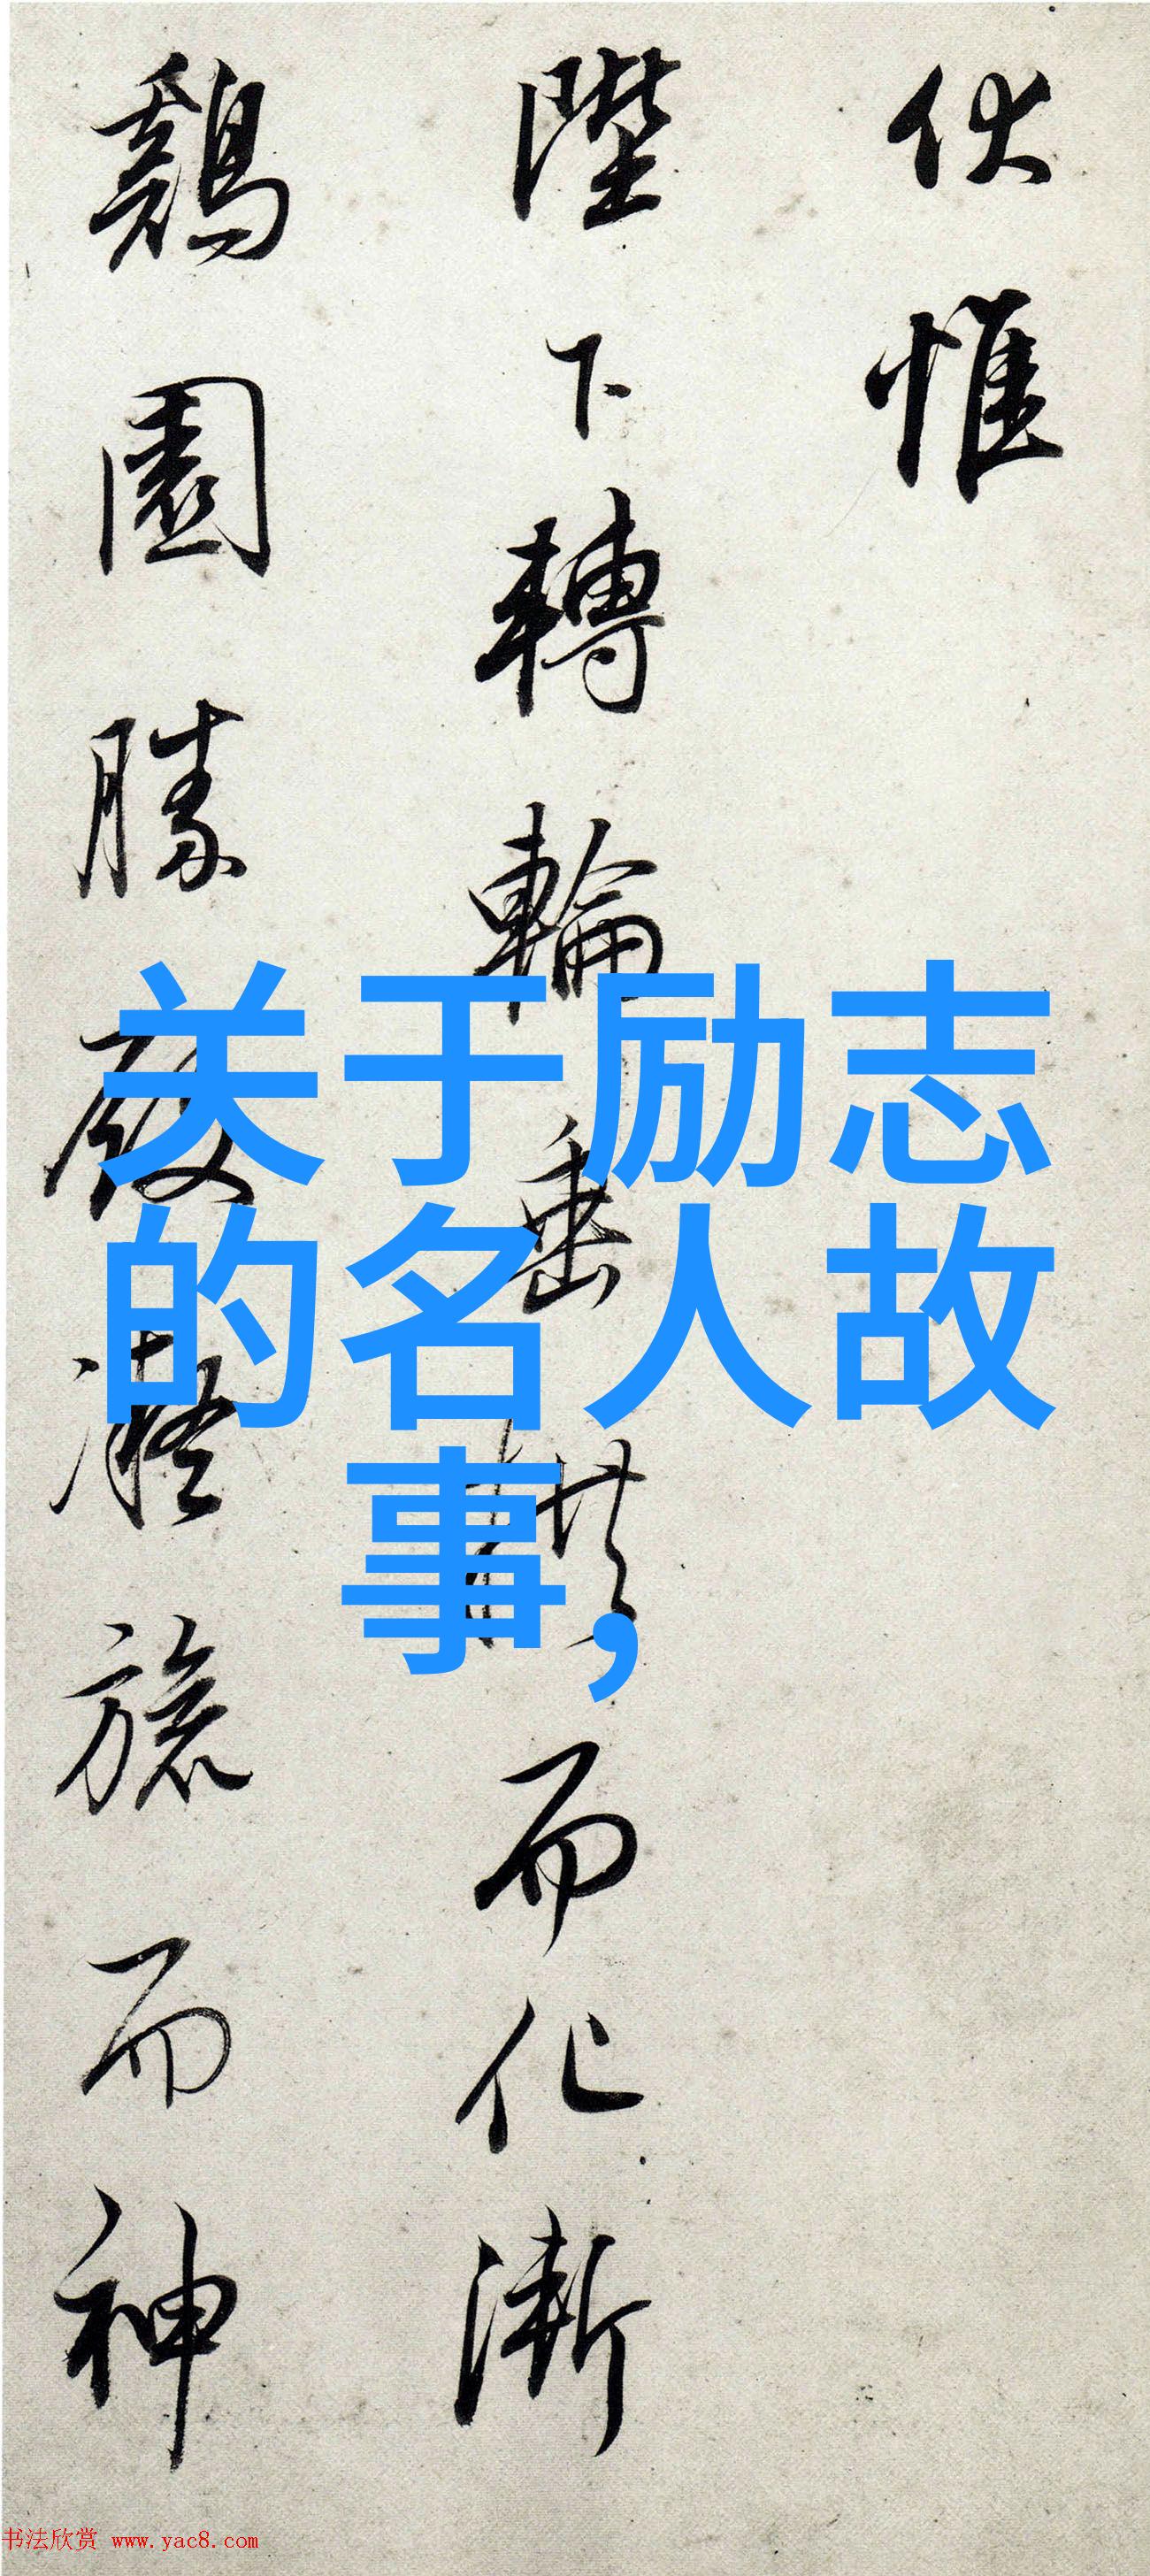 伏惟
陛下轉輪垂拱而化漸
鷄園勝殿凝旒而神
关于励志
的名人故
事，
书法欣赏 www.yac8.com